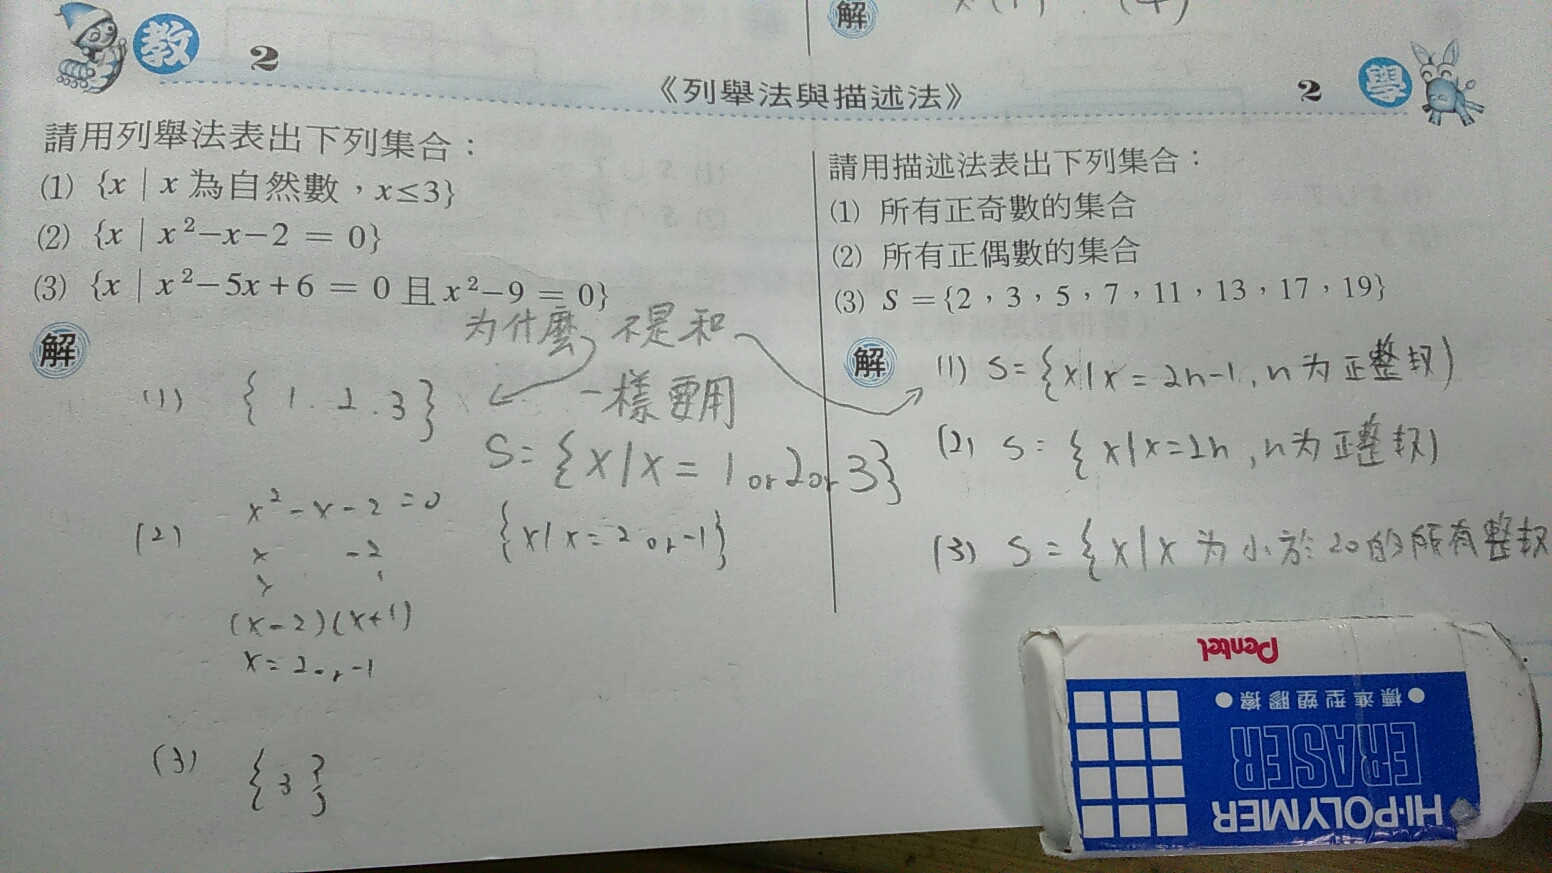 解
教 2
《列舉法與描述法》
2 學
請用列舉法表出下列集合：
(1) {x | x 為自然數，x≤3}
(2) {x | x²−x−2 = 0}
(3) {x | x²−5x+6 = 0 且 x²−9 = 0}
解
为什麼 不是和
一樣要用
S={x|x=1or2or3}
(1) {1.2.3}
(2) x²-x-2=0
x -2
x 1
(x-2)(x+1)
x=2or-1
{x|x=2or-1}
(3) {3}
請用描述法表出下列集合：
(1) 所有正奇數的集合
(2) 所有正偶數的集合
(3) S ={2，3，5，7，11，13，17，19}
解
(1) S={x|x=2n-1,n为正整수)
(2) S={x|x=2n,n为正整수)
(3) S={x|x为小於20的所有整
Pentel
●標準型塑膠擦●
ERASER
HI-POLYMER